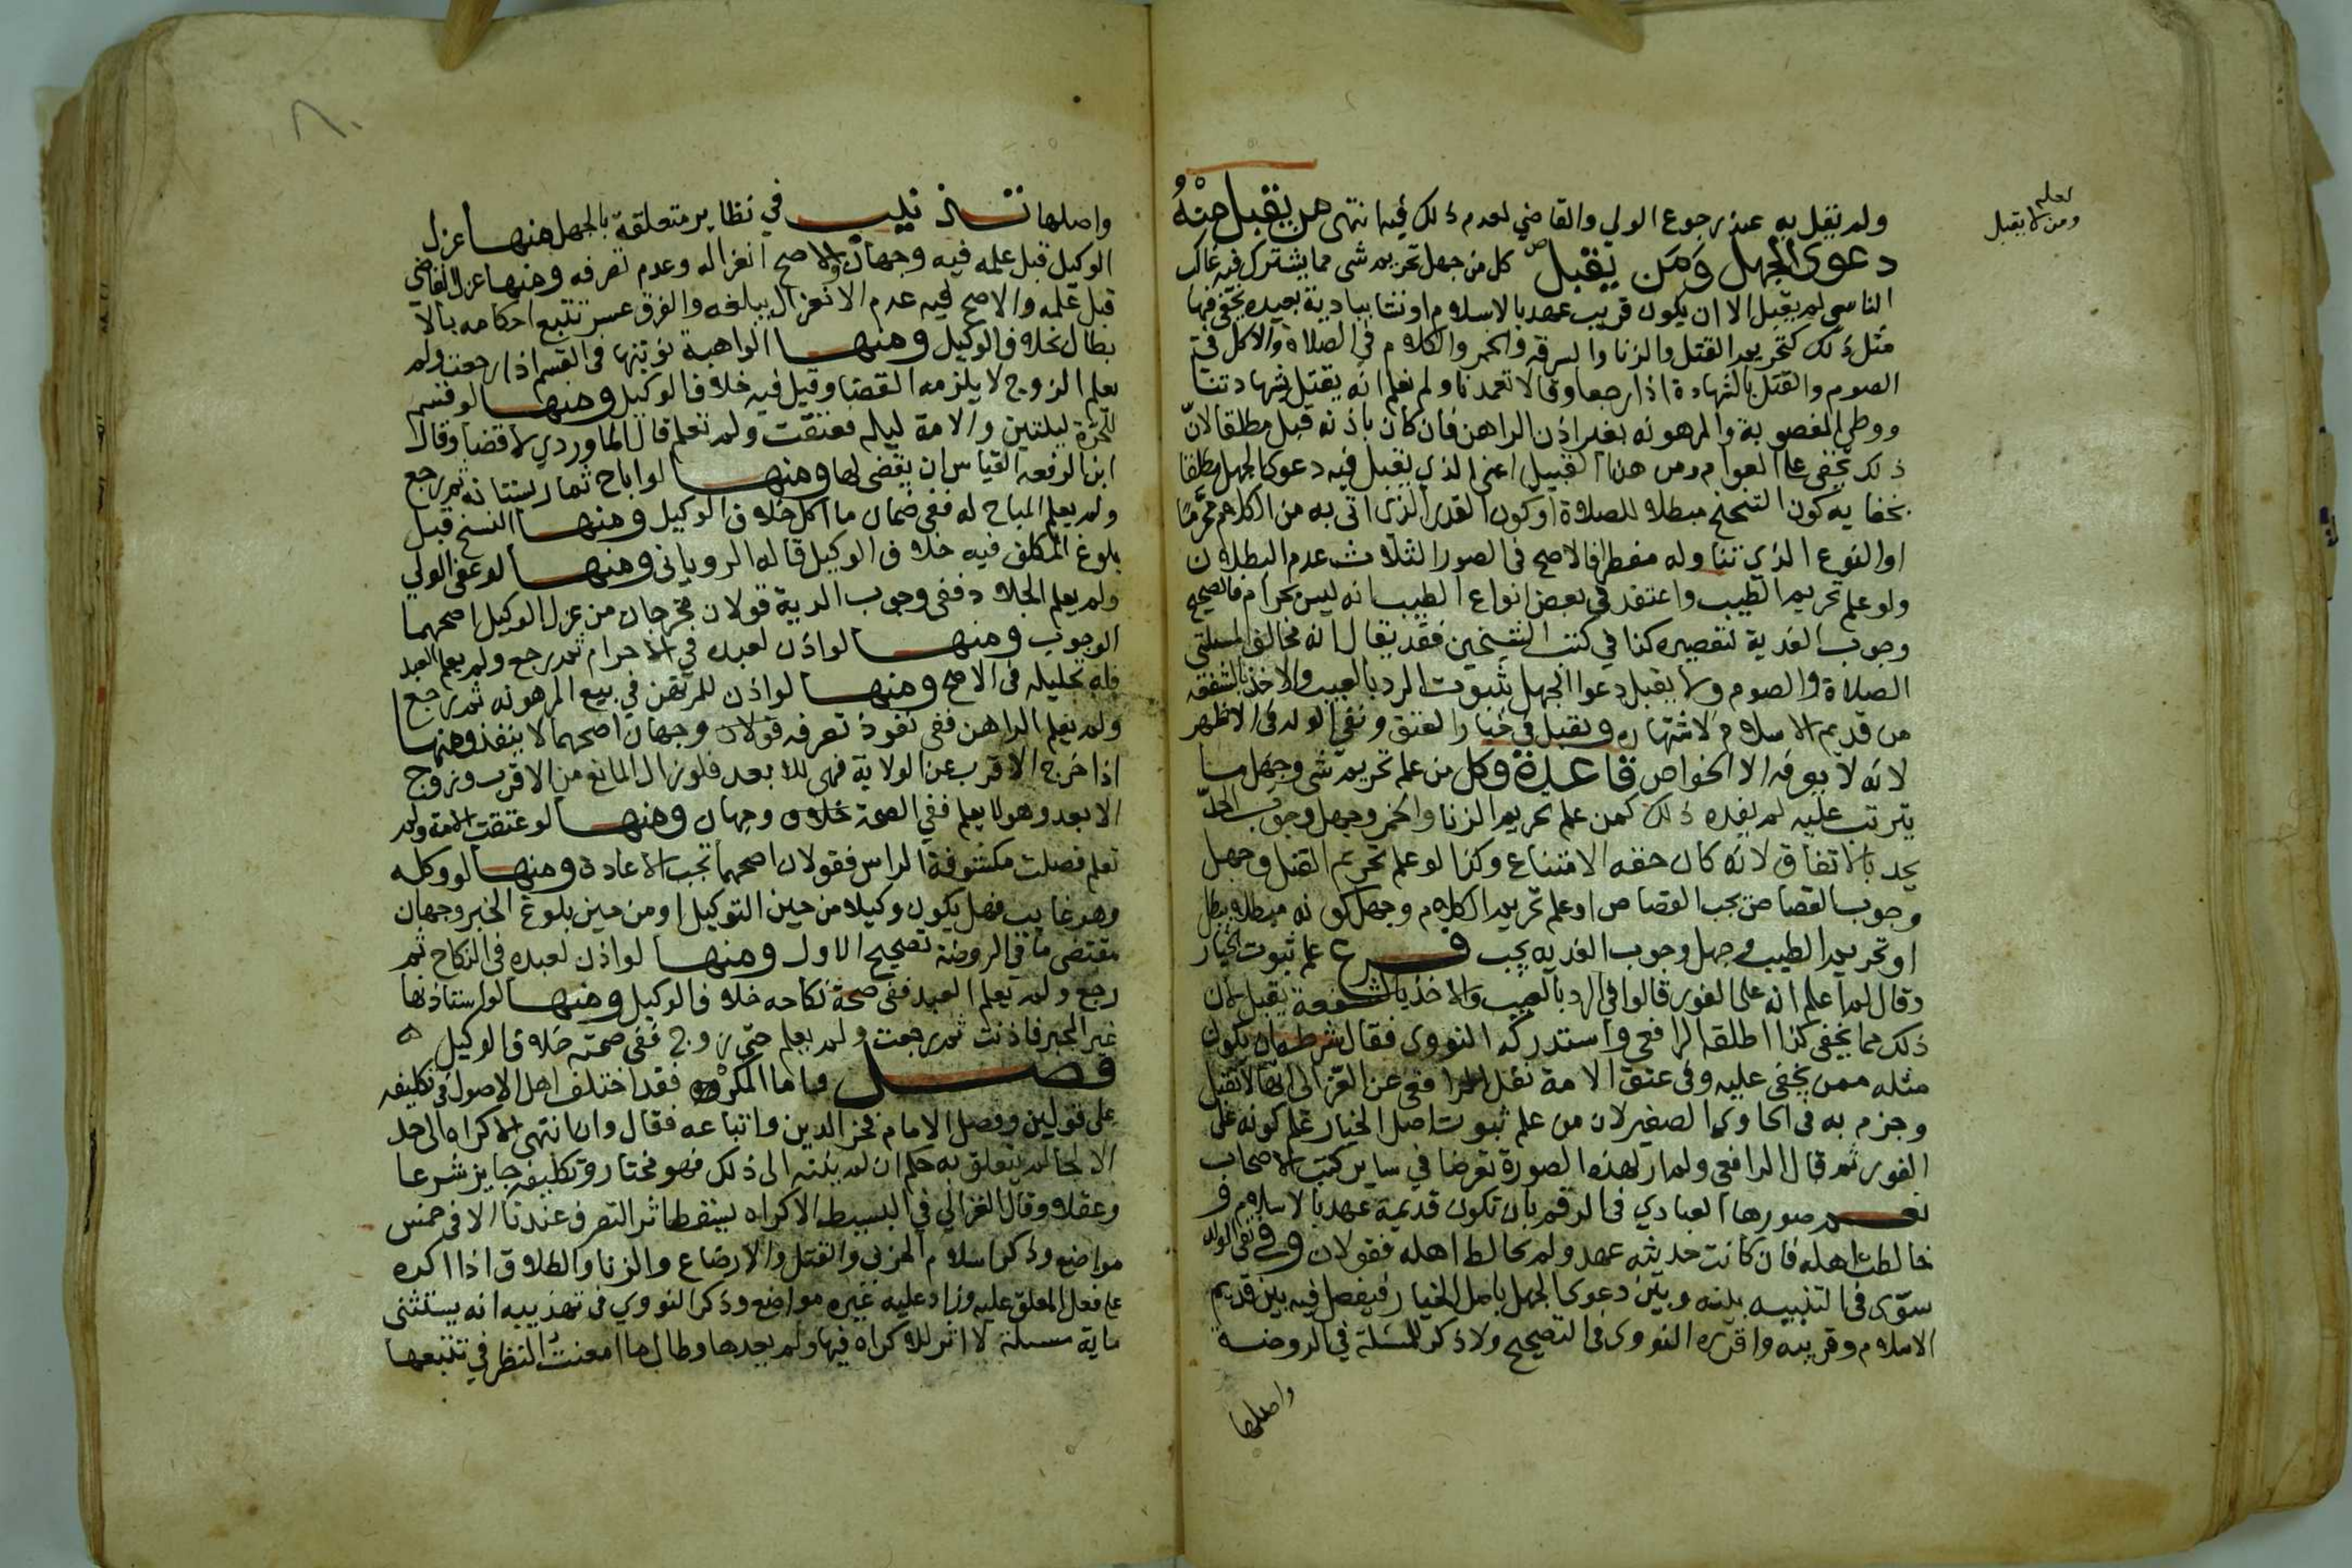 ولم نقل به عند رجوع الولي والقاضي لعدم ذلك فيه انتهى من يقبل منه
دعوى الجهل ومن لا يقبل كل من جهل تحريم شي مما يشترك فيه غالب
الناس لم يقبل الا ان يكون قريب عهد بالاسلام او نشا ببادية بعيده يخفى فيها
مثل ذلك كتحريم القتل والزنا والسرقه والخمر والكلام في الصلاة والاكل في
الصوم والقتل بالشهادة اذا رجعا وقالا تعمدنا ولم نعلم انه يقتل بشهادتنا
ووطى المغصوبة والمرهونه بغير اذن الراهن فان كان باذنه قبل مطلقا لان
ذلك يخفى على العوام ومن هذا القبيل اعنى الذي يقبل فيه دعوى الجهل مطلقا
بخفايه كون التنحنح مبطلا للصلاة او كون القدر الذي اتى به من الكلام محرما
او النوع الذي تناوله مفطر فالاصح في الصور الثلاث عدم البطلان
ولو علم تحريم الطيب واعتقد في بعض انواع الطيب انه ليس بحرام فالصحيح
وجوب الفدية لتقصيره كذا في كتب الشيخين فقد يقال انه مخالف لمسلتي
الصلاة والصوم ولا يقبل دعوا الجهل بثبوت الرد بالعيب والاخذ بالشفعه
من قديم الاسلام لاشتهاره وتقبل في خيار العتق ونفي الولد في الاظهر
لانه لا يعرفه الا الخواص قاعدة وكل من علم تحريم شي وجهل ما
يترتب عليه لم يفده ذلك كمن علم تحريم الزنا والخمر وجهل وجوب الحد
يحد بالاتفاق لانه كان حقه الامتناع وكذا لو علم تحريم القتل وجهل
وجوب القصاص يجب القصاص او علم تحريم الكلام وجهل كونه مبطلا يبطل
او تحريم الطيب وجهل وجوب الفديه يجب فرع علم ثبوت الخيار
وقال لم اعلم انه على الفور قالوا في الرد بالعيب والاخذ بالشفعة يقبل لان
ذلك مما يخفى كذا اطلقه الرافعي واستدركه النووى فقال شرطه ان يكون
مثله ممن يخفى عليه وفى عتق الامة نقل الرافعى عن الغزالى انها لا تقبل
وجزم به في الحاوي الصغير لان من علم ثبوت اصل الخيار علم كونه على
الفور ثم قال الرافعي ولم ار لهذه الصورة تعرضا في ساير كتب الاصحاب
نعم صورها العبادي في الرقم بان تكون قديمة عهد بالاسلام و
خالطت اهله فان كانت حديثه عهد ولم تخالط اهله فقولان وفي نفى الولد
سوى في التنبيه بينه وبين دعوى الجهل باصل الخيار فيفصل فيه بين قديم
الاسلام وقريبه واقره النووى في التصحيح ولا ذكر للمسئلة في الروضة
واصلها
تعليم
ومن لا يقبل
واصلها تذنيب في نظاير متعلقة بالجهل منها عزل
الوكيل قبل علمه فيه وجهان والاصح انعزاله وعدم تصرفه ومنها عزل القاضي
قبل علمه والاصح فيه عدم الانعزال يبلغه والفرق عسر تتبع احكامه بالا
بطال بخلاف الوكيل ومنها الواهبة نوبتها في القسم اذا رجعت ولم
يعلم الزوج لا يلزمه القضا وقيل فيه خلاف الوكيل ومنها لو قسم
للحرة ليلتين والامة ليله فعتقت ولم تعلم قال الماوردي لا قضا وقال
ابن الرفعه القياس ان يقضى لها ومنها لو اباح ثمار بستانه ثم رجع
ولم يعلم المباح له ففي ضمان ما اكل خلاف الوكيل ومنها النسخ قبل
بلوغ المكلف فيه خلاف الوكيل قاله الرويانى ومنها لو عفى الولي
ولم يعلم الجلاد ففي وجوب الدية قولان مخرجان من عزل الوكيل اصحهما
الوجوب ومنها لو اذن لعبده في الاحرام ثم رجع ولم يعلم العبد
فله تحليله في الاصح ومنها لو اذن للمرتهن في بيع المرهونه ثم رجع
ولم يعلم الراهن ففي نفوذ تصرفه قولان وجهان اصحهما لا ينفذ ومنها
اذا خرج الاقرب عن الولاية فهى للابعد فلو زال المانع من الاقرب وزوج
الابعد وهو لا يعلم ففي الصحة خلاف وجهان ومنها لو عتقت الامة ولم
تعلم فصلت مكشوفة الراس فقولان اصحهما تجب الاعادة ومنها لو وكله
وهو غايب فهل يكون وكيلا من حين التوكيل او من حين بلوغ الخبر وجهان
مقتضى ما في الروضة تصحيح الاول ومنها لو اذن لعبده في النكاح ثم
رجع ولم يعلم العبد ففي صحة نكاحه خلاف الوكيل ومنها لو استاذنها
غير المجبر فاذنت ثم رجعت ولم يعلم حتى زوج ففي صحته خلاف الوكيل
فصل واما المكره فقد اختلف اهل الاصول في تكليفه
على قولين وفصل الامام فخر الدين واتباعه فقال وان انتهى الاكراه الى حد
الالجا لم يتعلق به حكم ان لم ينته الى ذلك فهو مختار وتكليفه جايز شرعا
وعقلا وقال الغزالي في البسيط الاكراه يسقط اثر التصرف عندنا الا في خمس
مواضع وذكر اسلام الحربى والقتل والارضاع والزنا والطلاق اذا اكره
على فعل المعلق عليه وزاد عليه غيره مواضع وذكر النووي في تهذيبه انه يستثنى
ماية مسلة لا اثر للاكراه فيها ولم يعدها وطال ما امعنت النظر في تتبعها